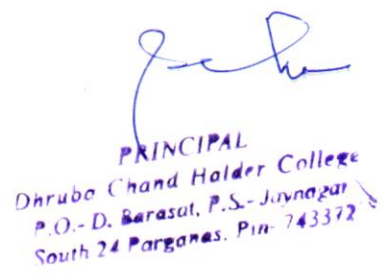 PRINCIPAL
Dhruba Chand Halder College
P.O.- D. Barasat, P.S.- Jaynagar
South 24 Parganas. Pin- 743372